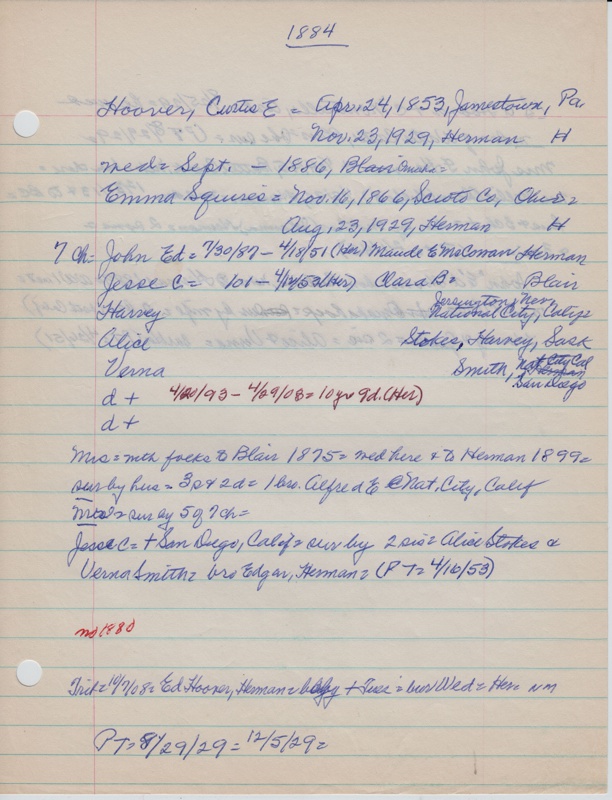 1884
Hoover, Curtis E = Apr. 24, 1853, Jamestown, Pa.
Nov. 23, 1929, Herman H
med = Sept. - 1886, Blair Omaha =
Emma Squires = Nov. 16, 1866, Scioto Co, Ohio =
Aug. 23, 1929, Herman H
7 Ch = John Ed = 7/30/87 - 4/18/51 (Her) Maude E McCowan Herman
Jesse C = 101 - 4/12/53 (Her) Clara B = Blair
Harvey = Yerrington, Nev. National City, Calif
Alice Stokes, Harvey, Sask
Verna Smith, Nat. City Cal
Herman
San Diego
d + 4/20/93 - 4/29/03 = 10 yr 9 d. (Her)
d +
Mrs = with folks to Blair 1875 = med here + to Herman 1899 =
sur by hus = 3 s + 2 d = 1 bro. Alfred E Nat. City, Calif
= sur by 5 of 7 ch =
Jesse C = + San Diego, Calif = sur by 2 sis = Alice Stokes &
Verna Smith = bro Edgar, Herman = (P T = 4/16/53)
no 1980
Trib = 10/7/08 = Ed Hoover, Herman = + Tues = bur Wed = Her = nm
P T = 8/29/29 = 12/5/29 =